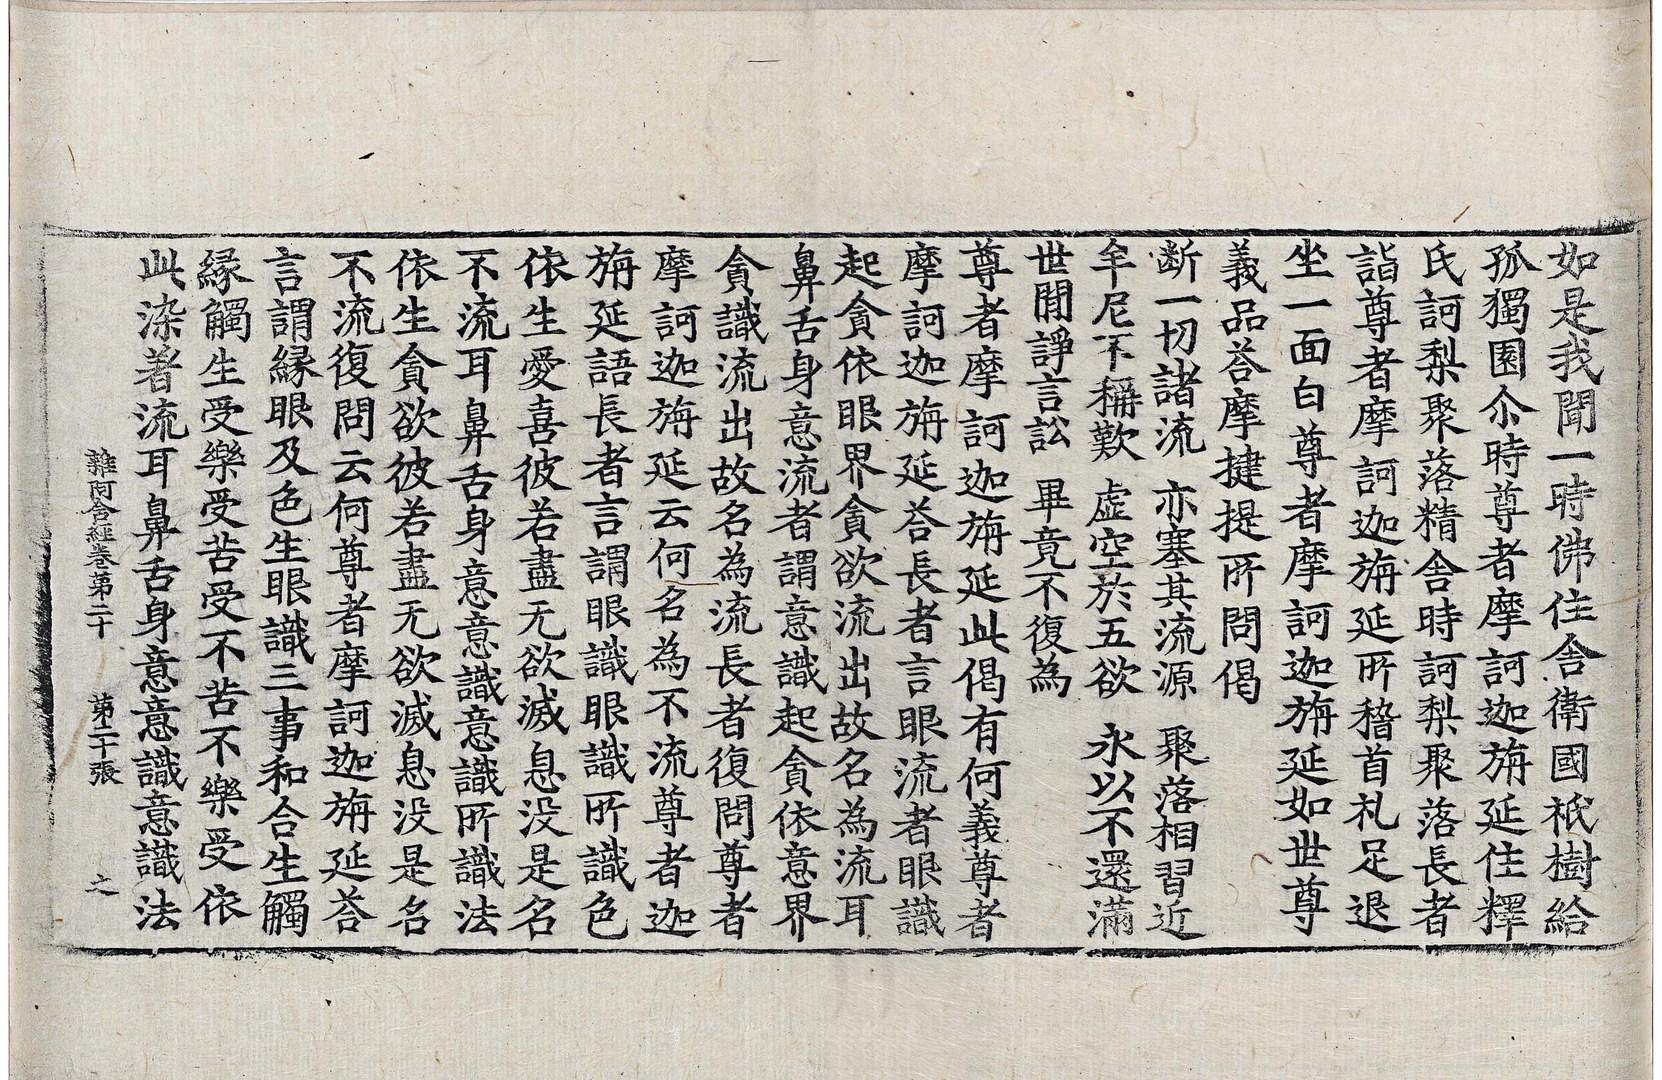 如是我聞一時佛住舎衛國祇樹給
孤獨園尒時尊者摩訶迦旃延住釋
氏訶梨聚落精舎時訶梨聚落長者
詣尊者摩訶迦旃延所稽首礼足退
坐一面白尊者摩訶迦旃延如世尊
義品荅摩揵提所問偈
断一切諸流　亦塞其流源　聚落相習近
牟尼不稱歎　虚空於五欲　永以不還滿
世間諍言訟　畢竟不復為
尊者摩訶迦旃延此偈有何義尊者
摩訶迦旃延荅長者言眼流者眼識
起貪依眼界貪欲流出故名為流耳
鼻舌身意流者謂意識起貪依意界
貪識流出故名為流長者復問尊者
摩訶迦旃延云何名為不流尊者迦
旃延語長者言謂眼識眼識所識色
依生愛喜彼若盡无欲滅息没是名
不流耳鼻舌身意意識意識所識法
依生貪欲彼若盡无欲滅息没是名
不流復問云何尊者摩訶迦旃延荅
言謂縁眼及色生眼識三事和合生觸
縁觸生受樂受苦受不苦不樂受依
此染著流耳鼻舌身意意識意識法
雜阿含經卷第二十　第二十張　之